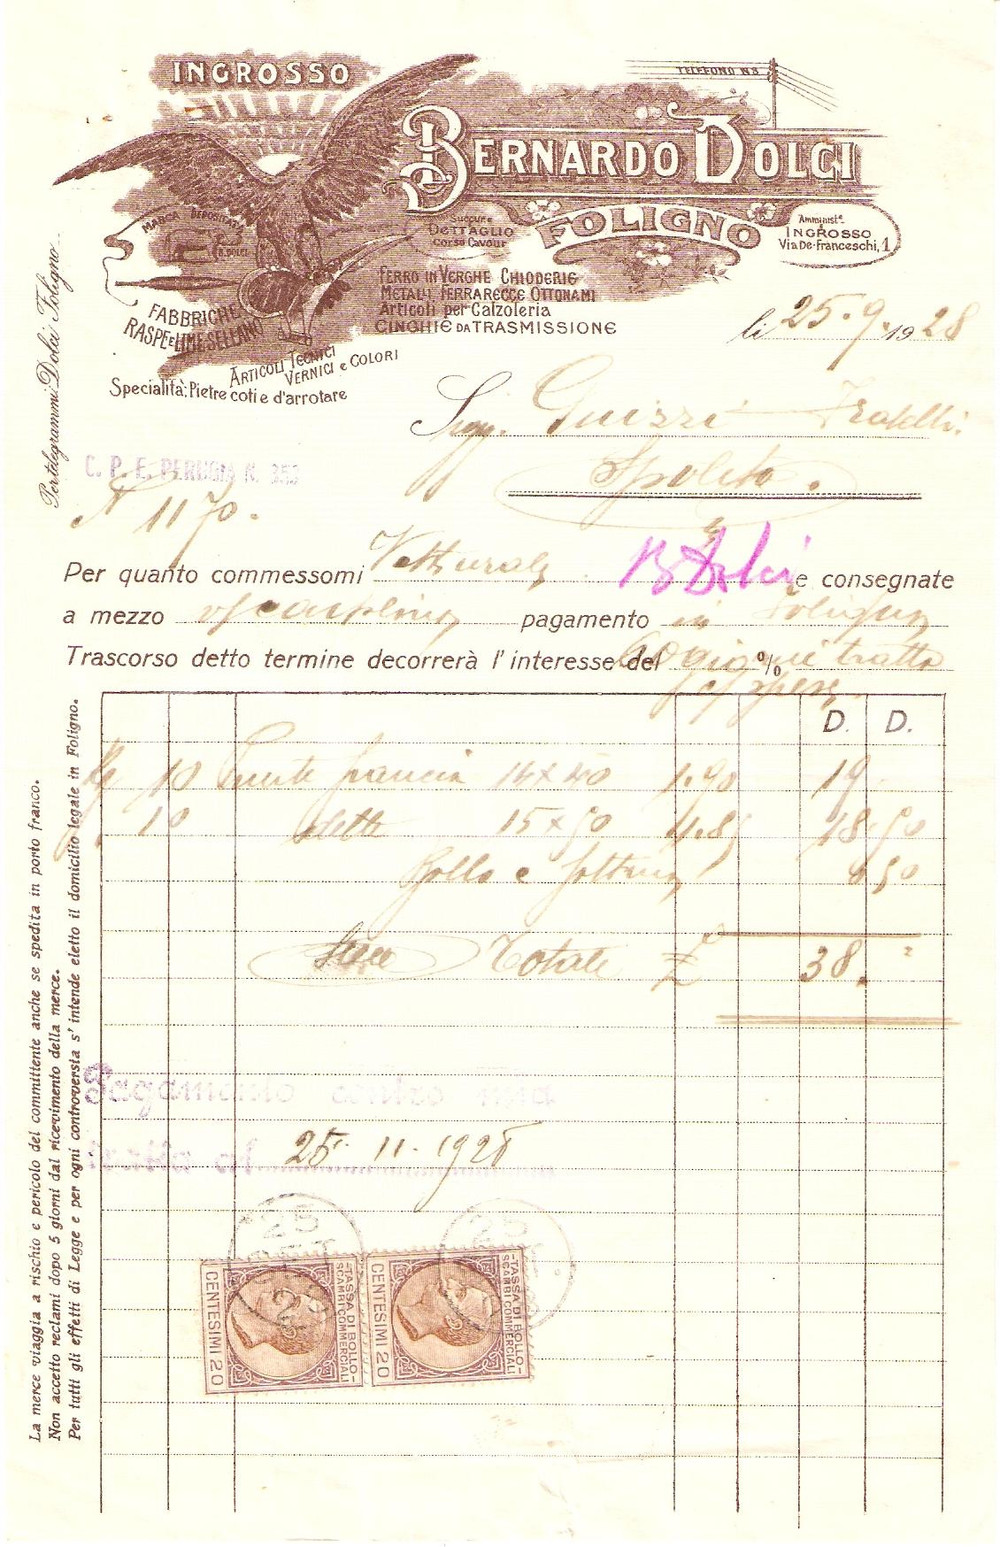 INGROSSO
TELEFONO N 3
BERNARDO DOLCI
FOLIGNO
MARCA DEPOSITATA
B. DOLCI
Succurs.
DETTAGLIO
Corso Cavour
Amministe.
INGROSSO
Via De-Franceschi, 1
FERRO IN VERGHE CHIODERIE
METALLI FERRARECCE OTTONAMI
Articoli per Calzoleria
CINGHIE DA TRASMISSIONE
FABBRICHE
RASPE e LIME SELLANO
ARTICOLI TECNICI
VERNICI e COLORI
Specialità: Pietre coti e d'arrotare
Per telegrammi: Dolci Foligno
li 25. 9. 1928
Sigg. Guizzi Fratelli.
Spoleto.
C. P. E. PERUGIA N. 353
N 1170.
Per quanto commessomi Vetturale B Dolci e consegnate
a mezzo pagamento in Foligno
Trascorso detto termine decorrerà l'interesse del % 60 giorni tratta
c/ spese
D. D.
Kg 10 Punte francia 14 x 40 1.90 19
10 dette 15 x 50 1.85 18.50
Bollo e 50
Totale £ 38.
Pagamento contro mia
tratta al 25. 11. 1928
25
28
25
TASSA DI BOLLO
SCAMBI COMMERCIALI
CENTESIMI 20
TASSA DI BOLLO
SCAMBI COMMERCIALI
CENTESIMI 20
La merce viaggia a rischio e pericolo del committente anche se spedita in porto franco.
Non accetto reclami dopo 5 giorni dal ricevimento della merce.
Per tutti gli effetti di Legge e per ogni controversta s' intende eletto il domicilio legale in Foligno.